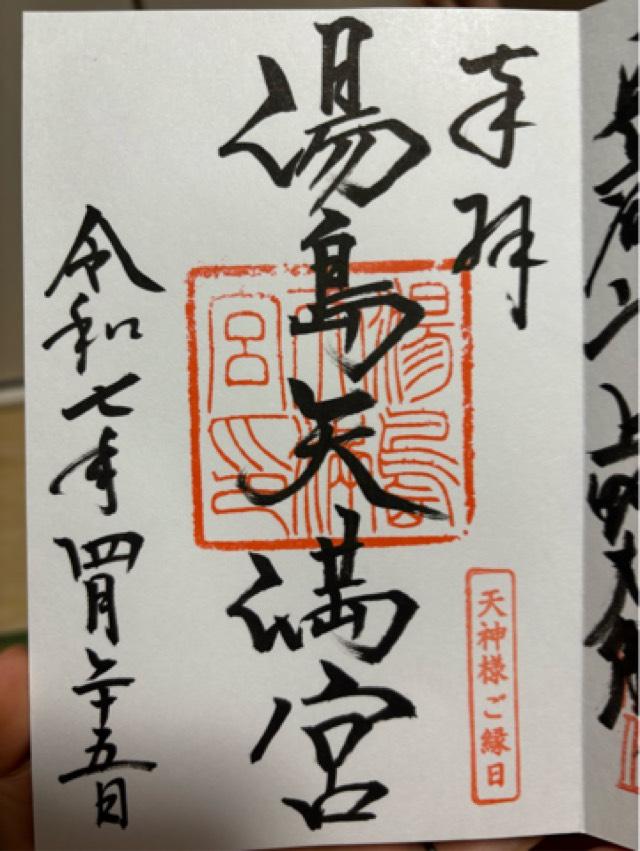 奉拝
天神様ご縁日
湯島天満宮
湯島
天満
宮印
令和七年四月二十五日